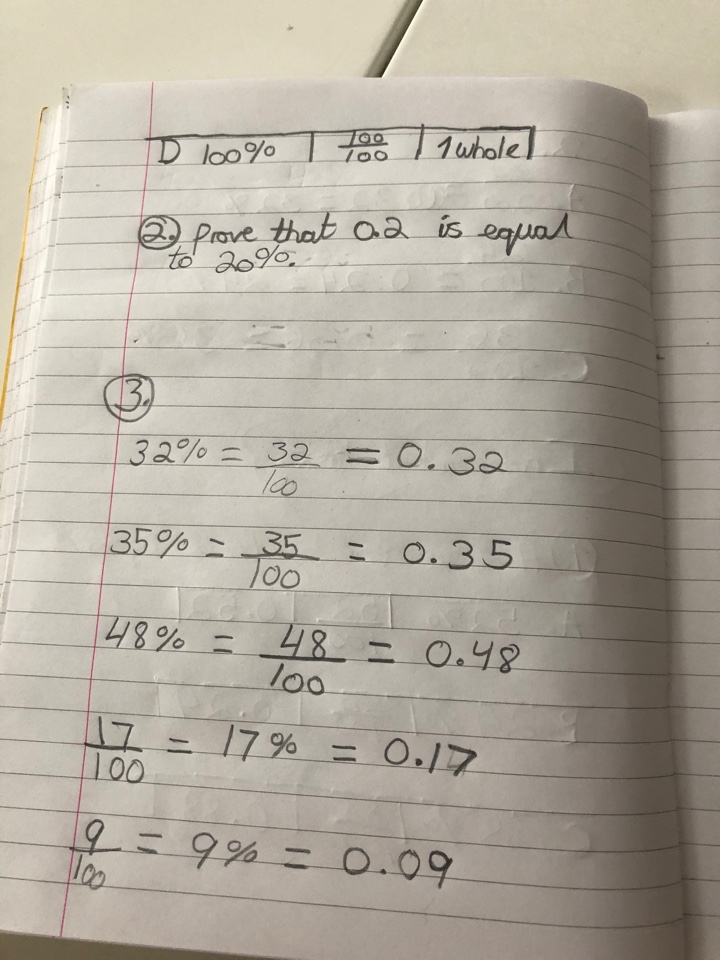 D 100% | 100/100 | 1 whole
2. prove that 0.2 is equal
to 20%.
3.
32% = 32/100 = 0.32
35% = 35/100 = 0.35
48% = 48/100 = 0.48
17/100 = 17% = 0.17
9/100 = 9% = 0.09